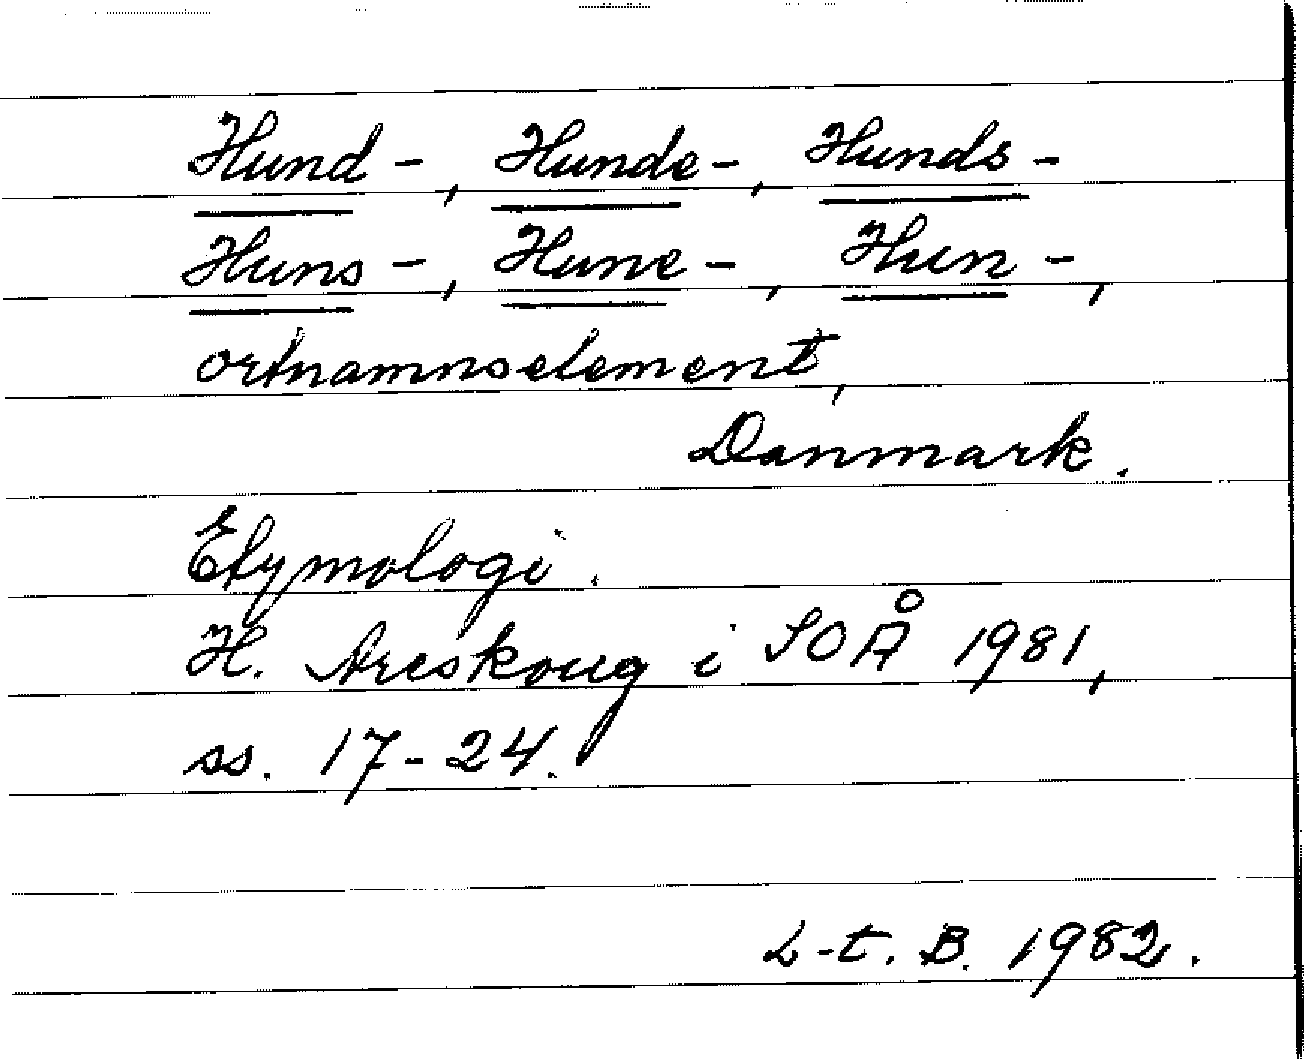 Hund-, Hunde-, Hunds-
Huns-, Hune-, Hun-,
ortnamnselement,
Danmark.
Etymologi.
H. Areskoug i SOÅ 1981,
ss. 17-24.
L-t. B. 1982.